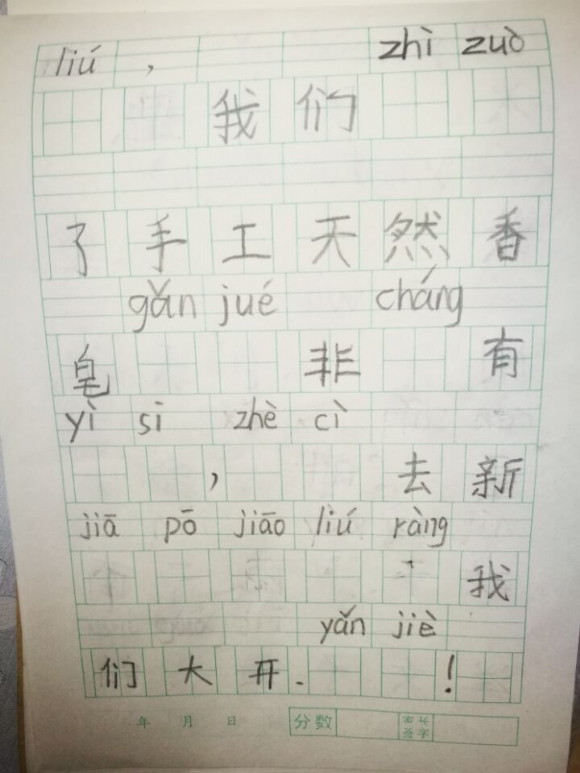 liú , zhì zuò
我们
了手工天然香
gǎn jué cháng
皂非有
yì si zhè cì
,去新
jiā pō jiāo liú ràng
我
yǎn jiè
们大开.!
年 月 日 分数 家长签字